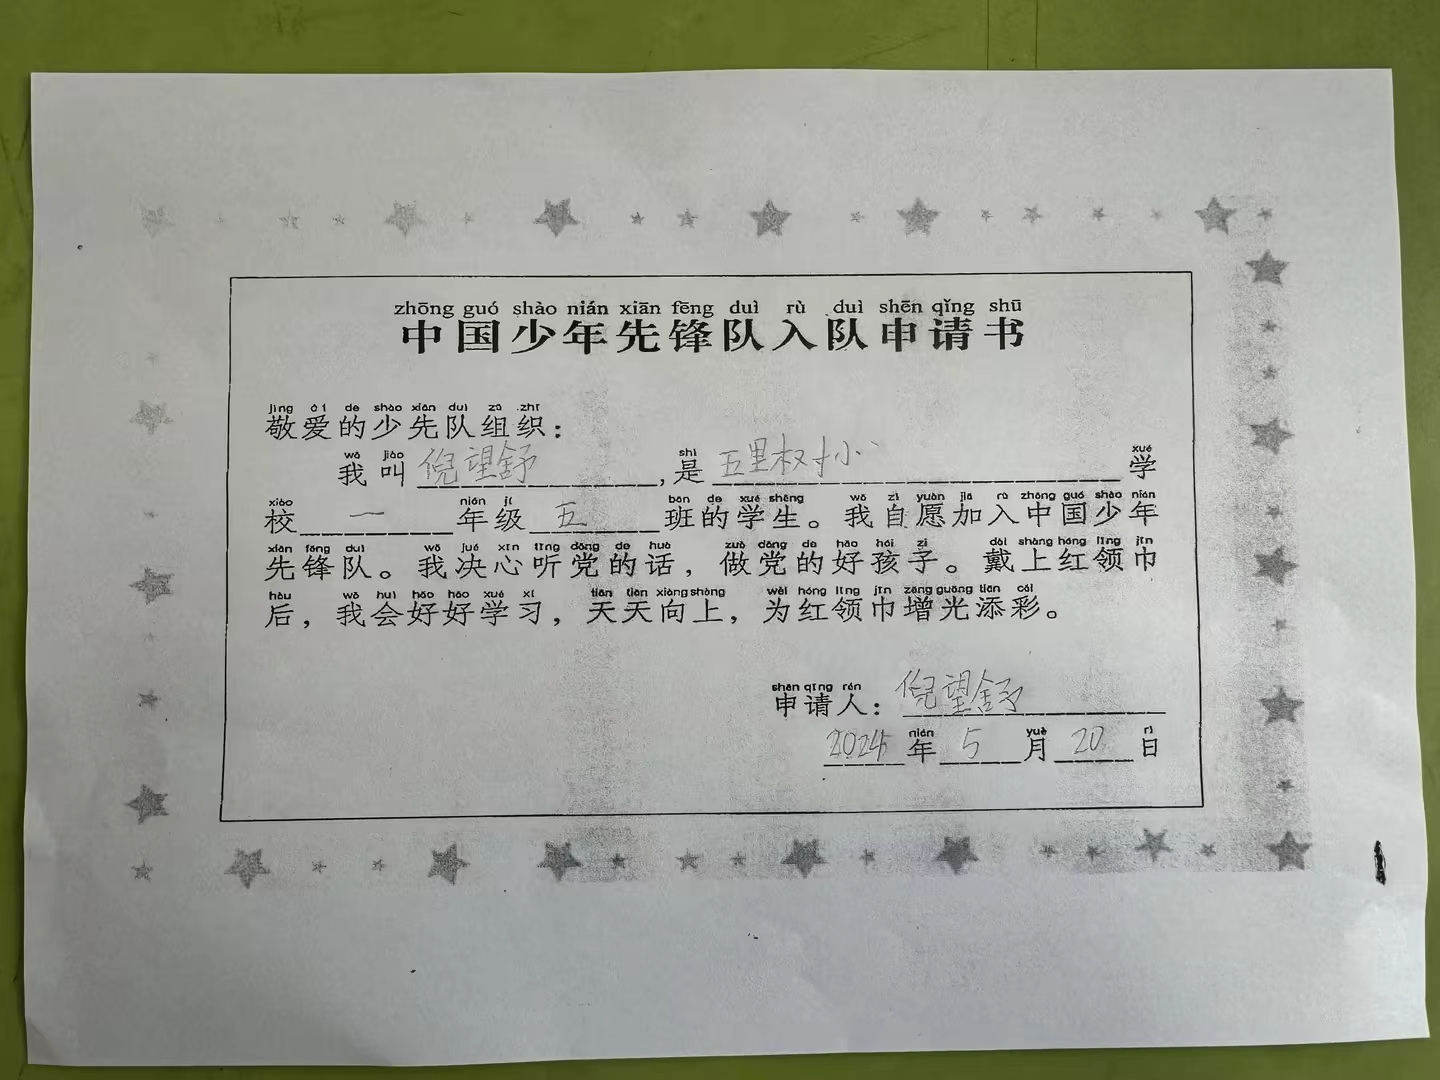 zhōng guó shào nián xiān fēng duì rù duì shēn qǐng shū
中国少年先锋队入队申请书
jìng ài de shào xiān duì zǔ zhī
敬爱的少先队组织：
wǒ jiào shì xué
我叫倪望舒,是五里权寸小学
xiào nián jí bān de xué shēng wǒ zì yuàn jiā rù zhōng guó shào nián
校一年级五班的学生。我自愿加入中国少年
xiān fēng duì wǒ jué xīn tīng dǎng de huà zuò dǎng de hǎo hái zi dài shàng hóng lǐng jīn
先锋队。我决心听党的话，做党的好孩子。戴上红领巾
hòu wǒ huì hǎo hǎo xué xí tiān tiān xiàng shàng wèi hóng lǐng jīn zēng guāng tiān cǎi
后，我会好好学习，天天向上，为红领巾增光添彩。
shēn qǐng rén
申请人：倪望舒
nián yuè rì
2024年5月20日